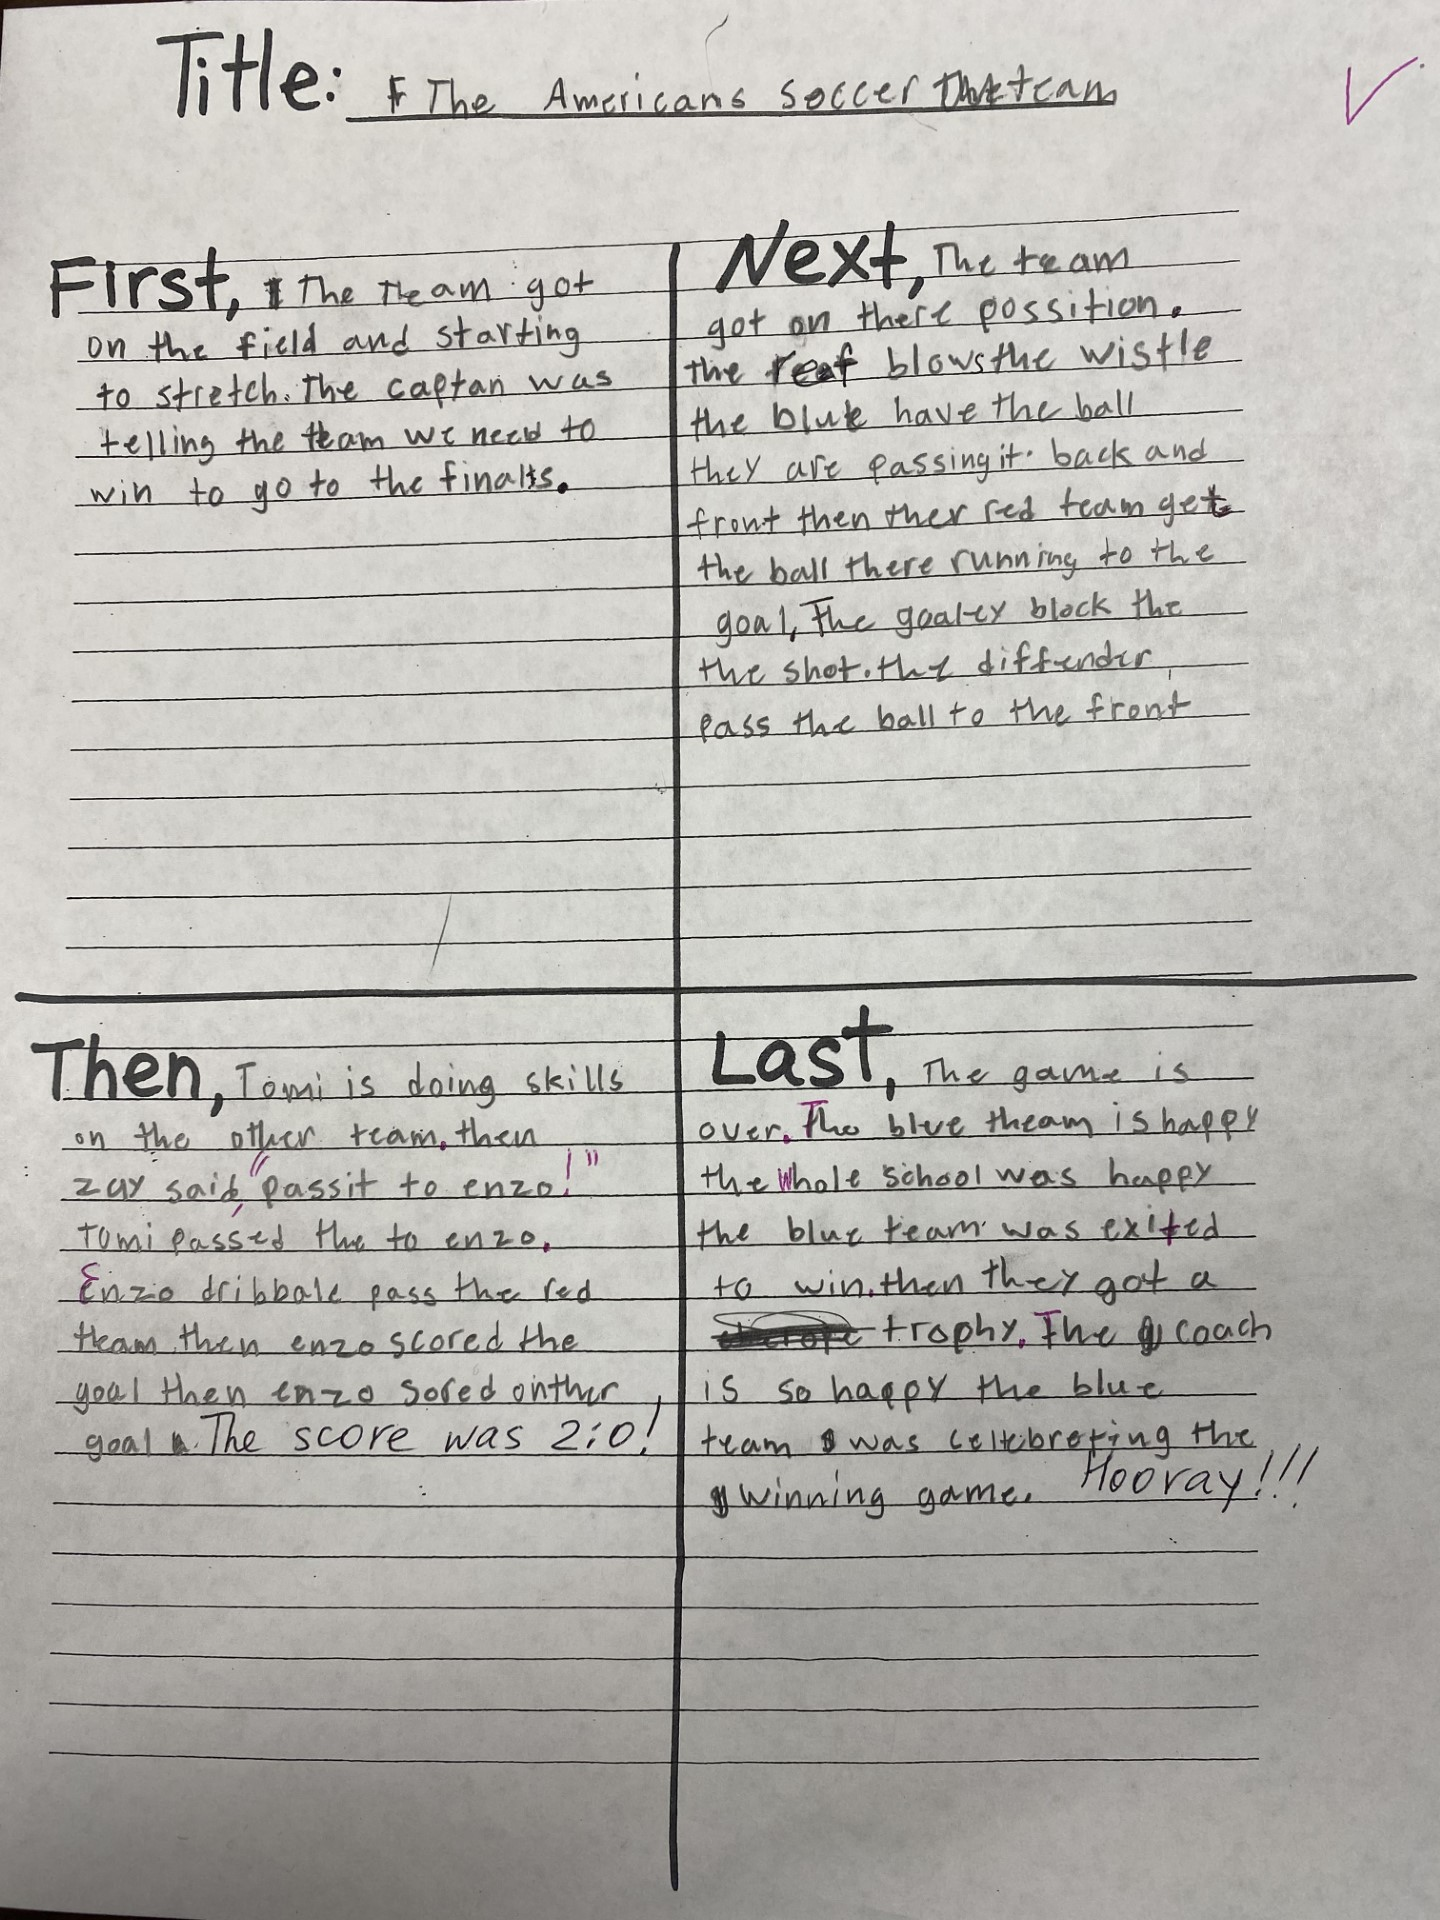 Title: The Americans soccer team
First, The Team got
on the field and starting
to stretch. The captan was
telling the team we need to
win to go to the finals.
Next, The team
got on there possition.
the ref blows the wistle
the blue have the ball
they are passing it. back and
front then ther red team get
the ball there running to the
goal, The goaley block the
the shot. the diffender
pass the ball to the front
Then, Tomi is doing skills
on the other team. then
zay said, "passit to enzo!"
Tomi passed the to enzo.
Enzo dribbale pass the red
team then enzo scored the
goal then enzo sored onther
goal. The score was 2:0!
Last, The game is
over. The blue theam is happy
the Whole school was happy
the blue team was exited
to win. then they got a
trophy. The coach
is so happy the blue
team was celebreting the
winning game. Hooray!!!